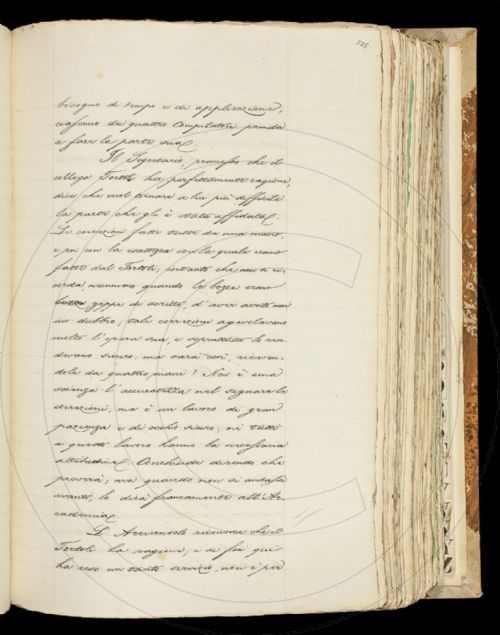 325
bisogno di tempo e di applicazione,
ciascuno dei quattro Compilatori prenda
a fare la parte sua.
Il Segretario, premesso che il
collega Tortoli ha perfettamente ragione,
dice che vuol tornare a lui più difficile
la parte che gli è stata affidata.
Le correzioni fatte tutte da una mano,
e poi con la esattezza con la quale erano
fatte dal Tortoli; intanto che non si ri-
corda nemmeno quando le bozze erano
zeppe di scritto, d'aver avuto mai
un dubbio; tali correzioni agevolavano
molto l'opera sua, e soprattutto la ren-
devano sicura; ma sarà così, riceven-
dole da quattro mani? Non è una
scienza l'accuratezza nel segnare le
correzioni; ma è un lavoro di gran
pazienza e di occhio sicuro; nè tutti
a questo lavoro hanno la necessaria
attitudine. Conchiude dicendo che
proverà; ma quando non si andasse
avanti, lo dirà francamente all'Ac-
cademia.
L'Arciconsolo riconosce che il
Tortoli ha ragione; e se fin qui
ha reso un tanto servizio, non è più